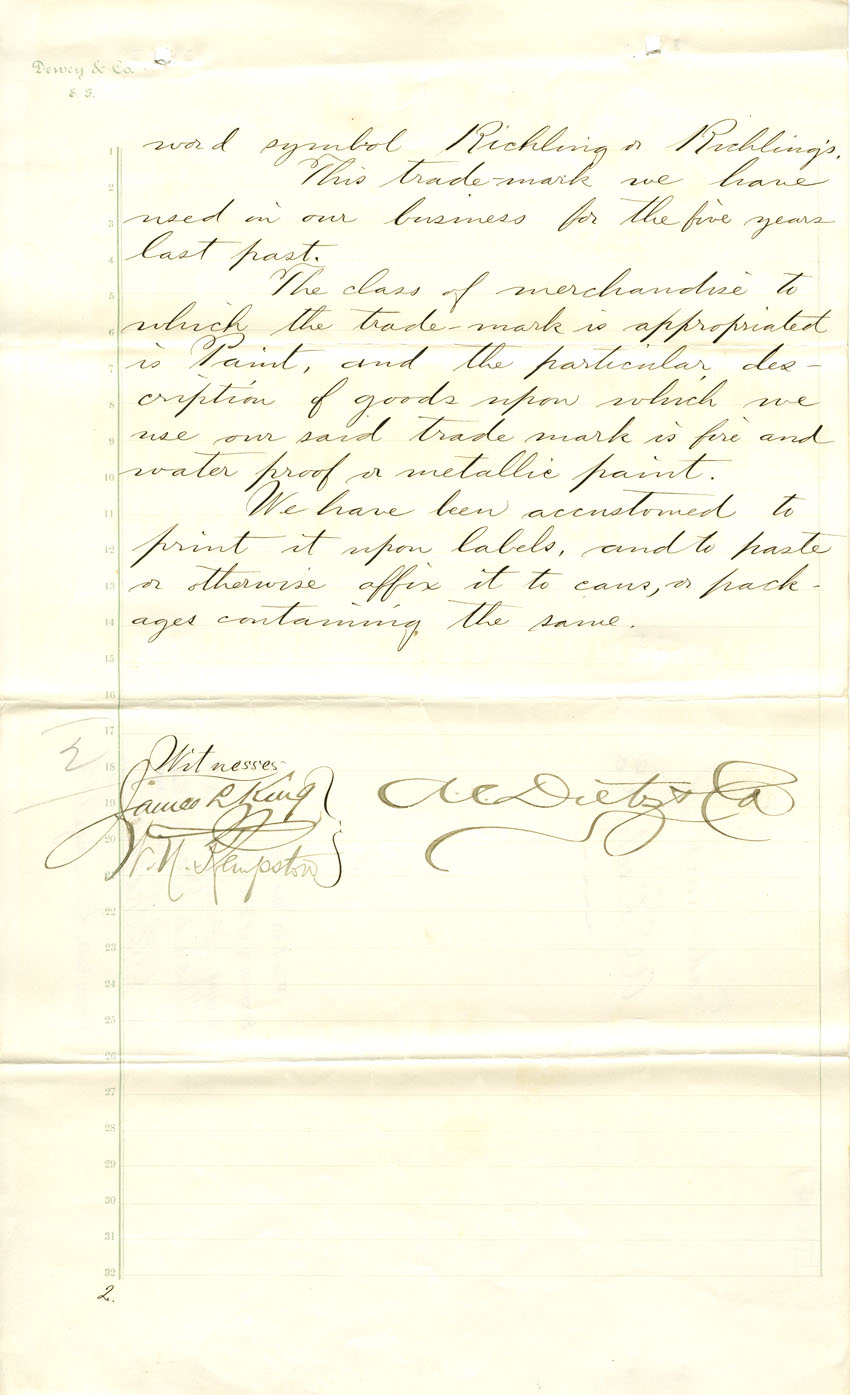 Dewey & Co.
S. F.
1 word symbol Richling or Richling's.
2 This trade-mark we have
3 used in our business for the five years
4 last past.
5 The class of merchandise to
6 which the trade-mark is appropriated
7 is Paint, and the particular des-
8 cription of goods upon which we
9 use our said trade mark is fire and
10 water proof or metallic paint.
11 We have been accustomed to
12 print it upon labels, and to paste
13 or otherwise affix it to cans, or pack-
14 ages containing the same.
15
16
17
18 Witnesses
19 James L. King
A.C. Dietz & Co
20
21 W. N. Kempston
22
23
24
25
26
27
28
29
30
31
32
2.